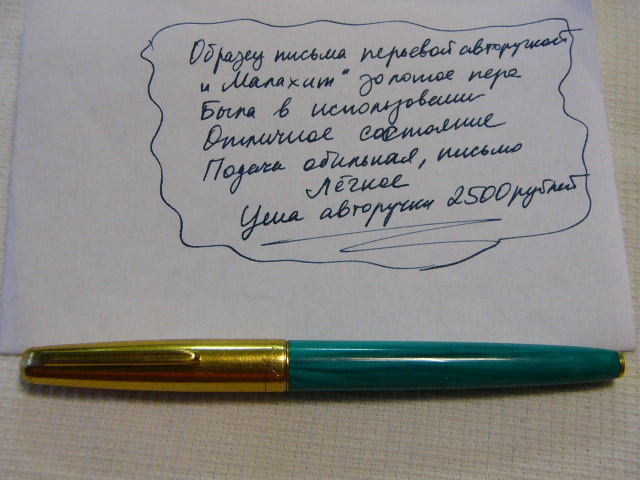 Образец письма перьевой авторучкой
„Малахит" золотое перо
Была в использовании
Отличное состояние
Подача обильная, письмо
Лёгкое
Цена авторучки 2500 рублей